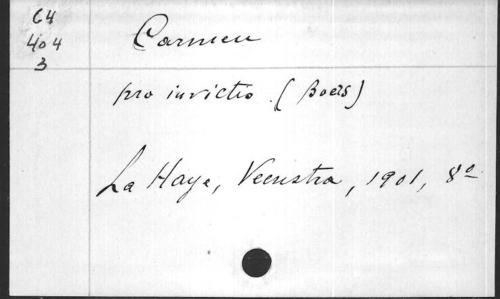 64
404
3
Carmen
pro invictis (Boers)
La Haye, Veenstra, 1901, 8º